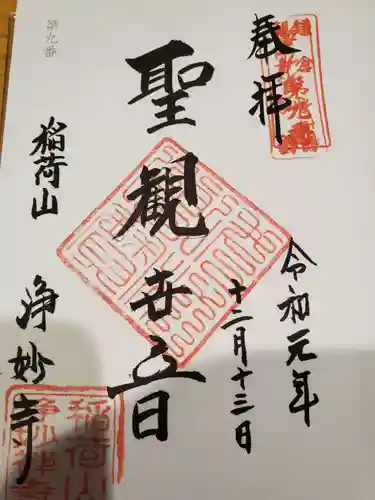 奉拝
令初元年
十二月十三日
聖観世音
第九番
稲荷山
浄妙寺
稲荷山
浄妙禅寺